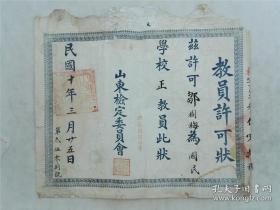 教員許可狀
茲許可鄒樹梅為國民
學校正教員此狀
山東檢定委員會
民國十年三月廿五日